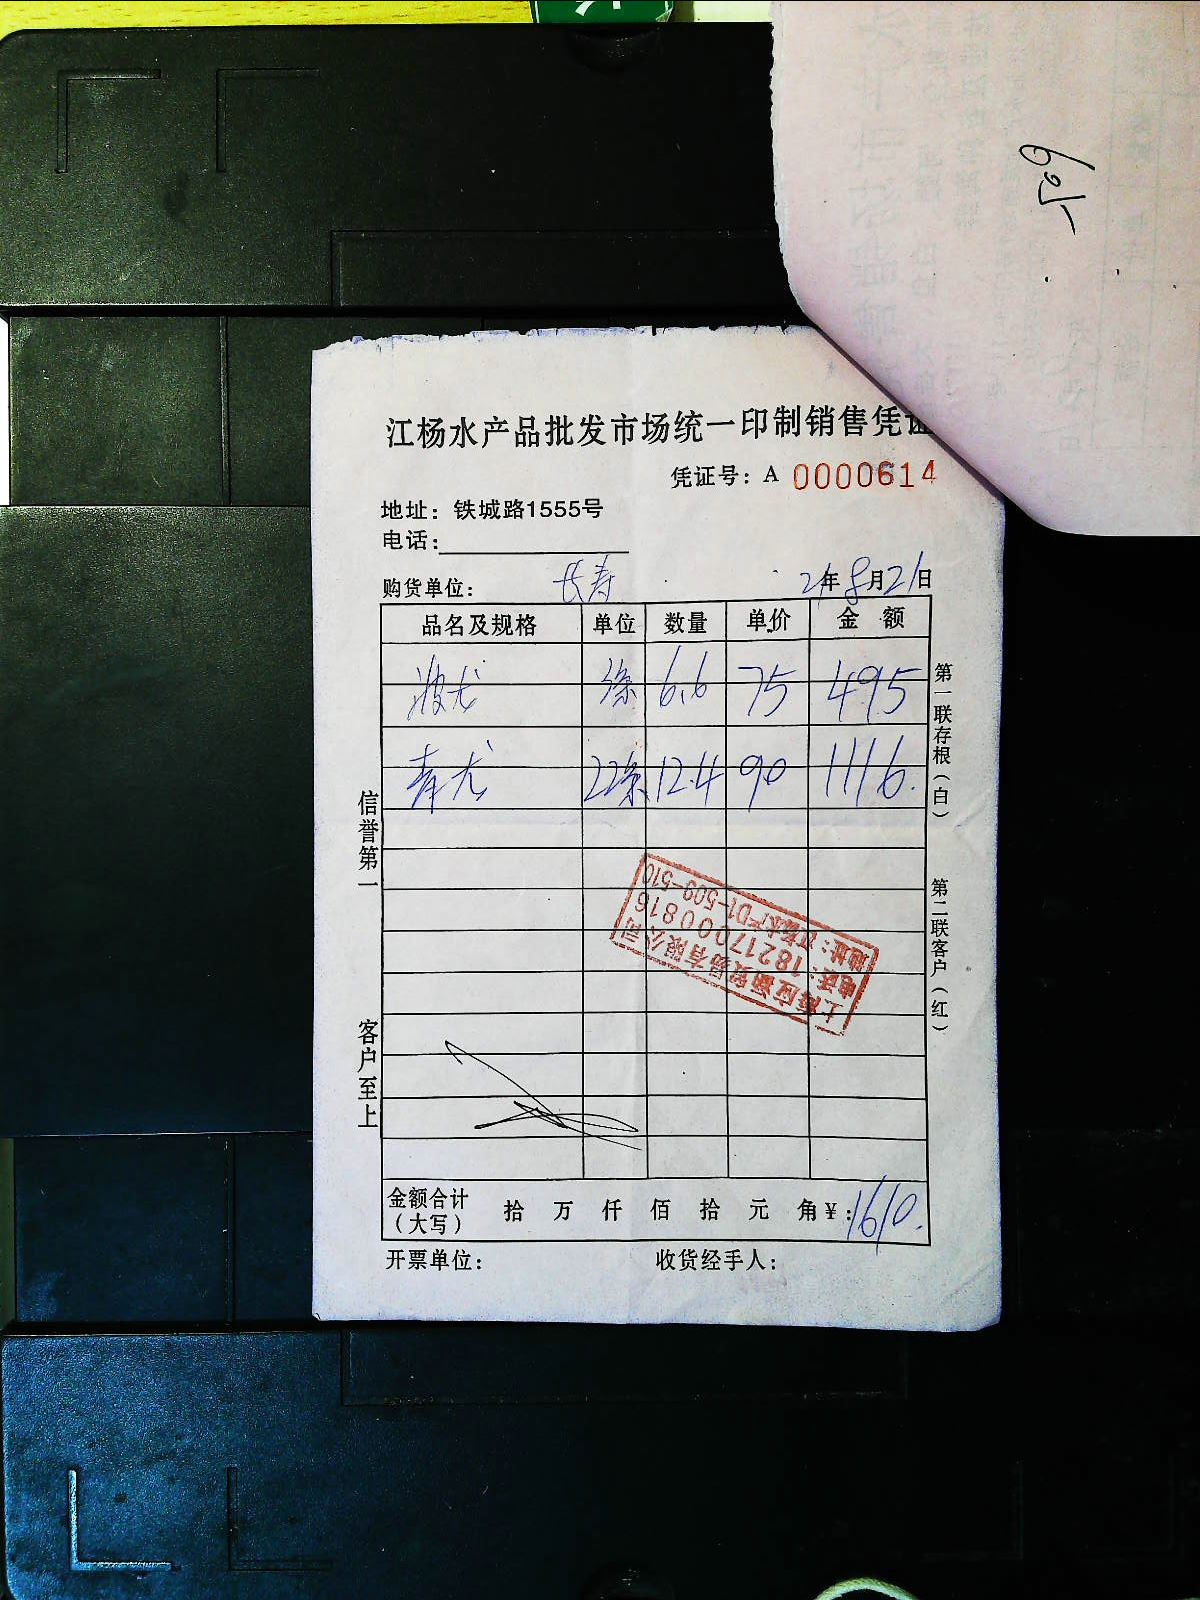 江杨水产品批发市场统一印制销售凭证
凭证号：A 0000614
地址：铁城路1555号
电话：
购货单位： 长寿 21年8月21日
品名及规格 单位 数量 单价 金额
波龙 条 6.6 75 495
青龙 22条 12.4 90 1116.
信誉第一
客户至上
第一联存根（白）
第二联客户（红）
上海应颖贸易有限公司
电话：18217000816
地址：江杨水产D1-509-510
金额合计（大写） 拾 万 仟 佰 拾 元 角 ¥：1610.
开票单位： 收货经手人：